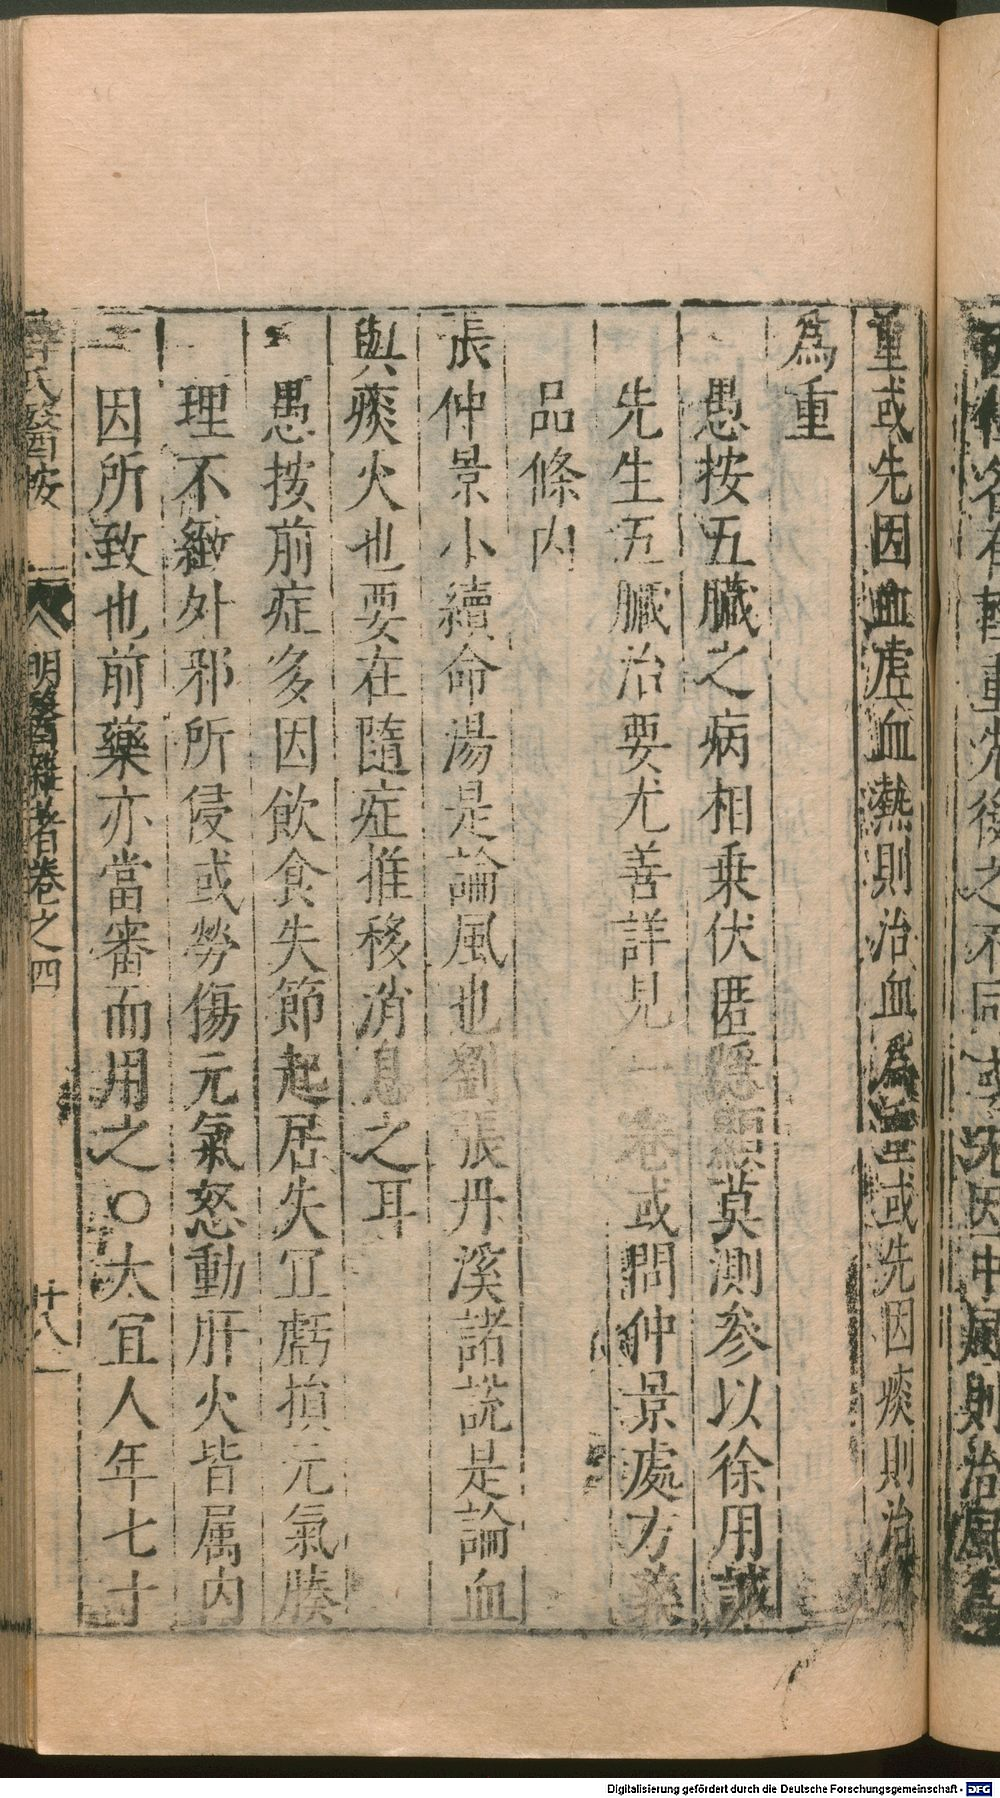 重或先因血虛血熱則治血為重或先因痰則治痰
為重
愚按五臟之病相乗伏匿隱顯莫測參以徐用誠
先生五臟治要尤善詳見一卷或問仲景處方藥
品條内
張仲景小續命湯是論風也劉張丹溪諸說是論血
與痰火也要在隨症推移消息之耳
愚按前症多因飲食失節起居失宜虧損元氣腠
理不緻外邪所侵或勞傷元氣怒動肝火皆属内
因所致也前藥亦當審而用之○太宜人年七十
薛氏醫按 八 明醫雜著卷之四 廿八
Digitalisierung gefördert durch die Deutsche Forschungsgemeinschaft - DFG